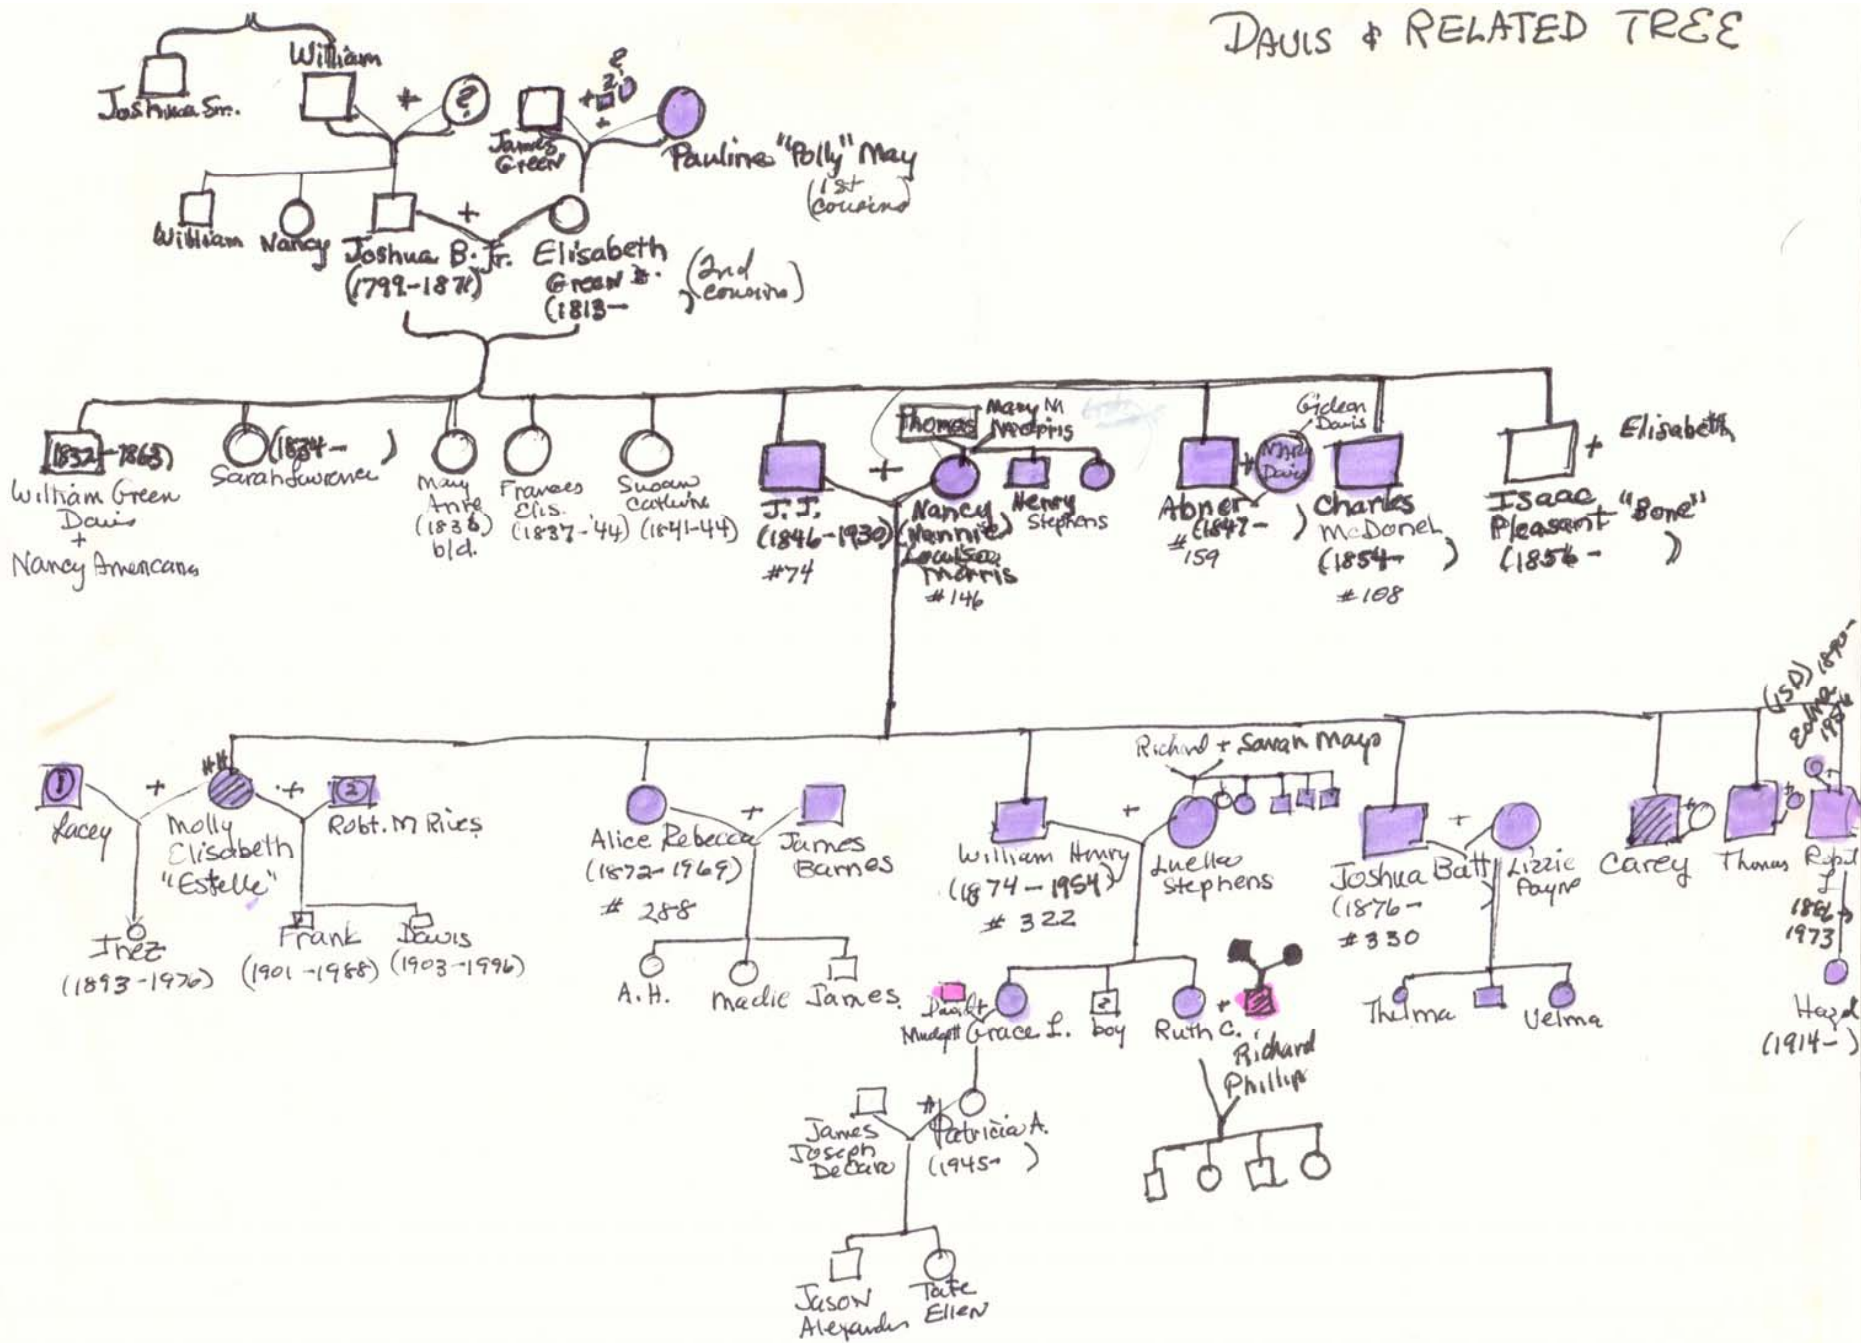 DAVIS & RELATED TREE
William
Joshua Sr.
+
?
?
2
+
+
James
Green
Pauline "Polly" May
(1st
cousins)
William
Nancy
+
Joshua B. Jr.
(1799-1871)
Elisabeth
Green
(1813-    )
(2nd
cousins)
(1832-1863)
William Green
Davis
+
Nancy Americana
(1834-    )
Sarah Lawrence
Mary
Anne
(1836)
b/d.
Frances
Elis.
(1837-'44)
Susan
Catherine
(1841-44)
J.J.
(1846-1930)
#74
+
Thomas
Mary M
Morris
Nancy
(Nannie)
Louisa
Morris
#146
Henry
Stephens
Abner
(1847-    )
#159
+
Mary
Davis
Gideon
Davis
Charles
McDonel
(1854-    )
#108
Isaac
Pleasant "Bone"
(1856-    )
+ Elisabeth
1
Lacey
+
Molly
Elisabeth
"Estelle"
+
2
Robt. M Rives
Inez
(1893-1976)
Frank
(1901-1988)
Davis
(1903-1996)
Alice Rebecca
(1872-1969)
# 288
+
James
Barnes
A.H.
Madie
James
William Henry
(1874-1954)
# 322
+
Richard + Sarah Mays
Luella
Stephens
David +
Mudgett
Grace L.
2
boy
Ruth C.
+
Richard
Phillip
James
Joseph
DeCaro
+
Patricia A.
(1945-    )
Jason
Alexander
Tate
Ellen
Joshua Batt
(1876-
#330
+
Lizzie
Payne
Thelma
Velma
Carey
+
Thomas
+
(ISD) 1890-
Edna
1956
+
Robt
L
1886-
1973
Hazel
(1914-   )